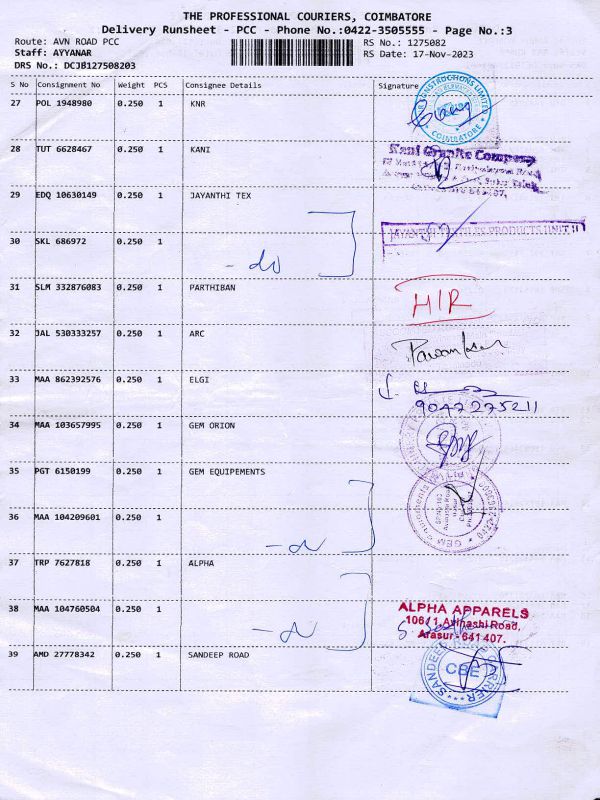 THE PROFESSIONAL COURIERS, COIMBATORE
Delivery Runsheet - PCC - Phone No.:0422-3505555 - Page No.:3
Route: AVN ROAD PCC
RS No.: 1275082
Staff: AYYANAR
RS Date: 17-Nov-2023
DRS No.: DCJB127508203
S No Consignment No Weight PCS Consignee Details Signature
27 POL 1948980 0.250 1 KNR
COIMBATORE
28 TUT 6628467 0.250 1 KANI
Kani Granite Company
29 EDQ 10630149 0.250 1 JAYANTHI TEX
30 SKL 686972 0.250 1
JAYANTHI TEXTILES PRODUCTS UNIT II
- do
31 SLM 332876083 0.250 1 PARTHIBAN
H/R
32 JAL 530333257 0.250 1 ARC
33 MAA 862392576 0.250 1 ELGI
9047275211
34 MAA 103657995 0.250 1 GEM ORION
35 PGT 6150199 0.250 1 GEM EQUIPEMENTS
36 MAA 104209601 0.250 1
37 TRP 7627818 0.250 1 ALPHA
38 MAA 104760504 0.250 1
ALPHA APPARELS
106/1 Avinashi Road,
Arasur - 641 407.
39 AMD 27778342 0.250 1 SANDEEP ROAD
SANDEEP
CARRIER
CBE